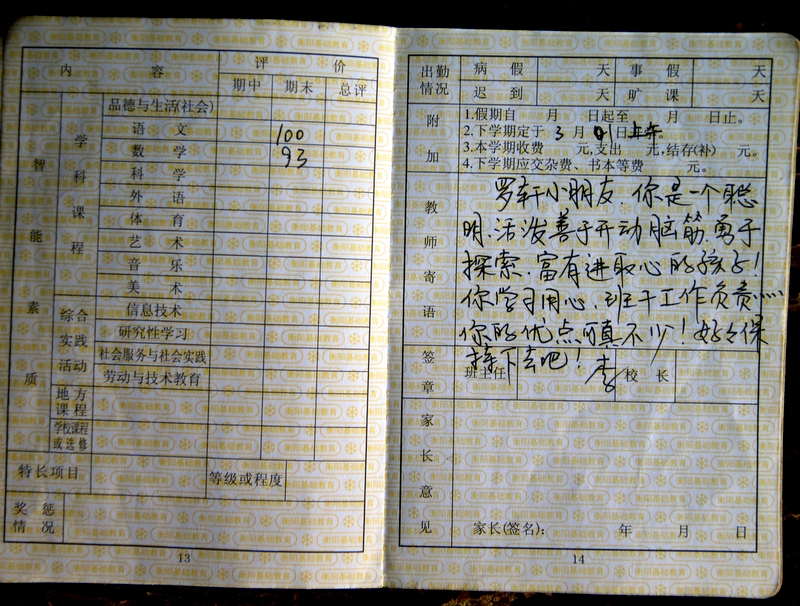 内 容 评 价
期中 期末 总评
智能素质
学科课程
品德与生活(社会)
语 文 100
数 学 93
科 学
外 语
体 育
艺 术
音 乐
美 术
综合实践活动
信息技术
研究性学习
社会服务与社会实践
劳动与技术教育
地方课程
学校课程或选修
特长项目 等级或程度
奖惩情况
13
出勤情况 病 假 天 事 假 天
迟 到 天 旷 课 天
附加
1.假期自 月 日起至 月 日止。
2.下学期定于 3 月 1 日上午
3.本学期收费 元,支出 元,结存(补) 元。
4.下学期应交杂费、书本等费 元。
教师寄语
罗轩小朋友.你是一个聪
明.活泼善于开动脑筋.勇于
探索.富有进取心的孩子!
你学习用心.班干工作负责……
你的优点可真不少!好好保
持下去吧! 李
签章 班主任 校 长
家长意见
家长(签名): 年 月 日
14
衡阳基础教育